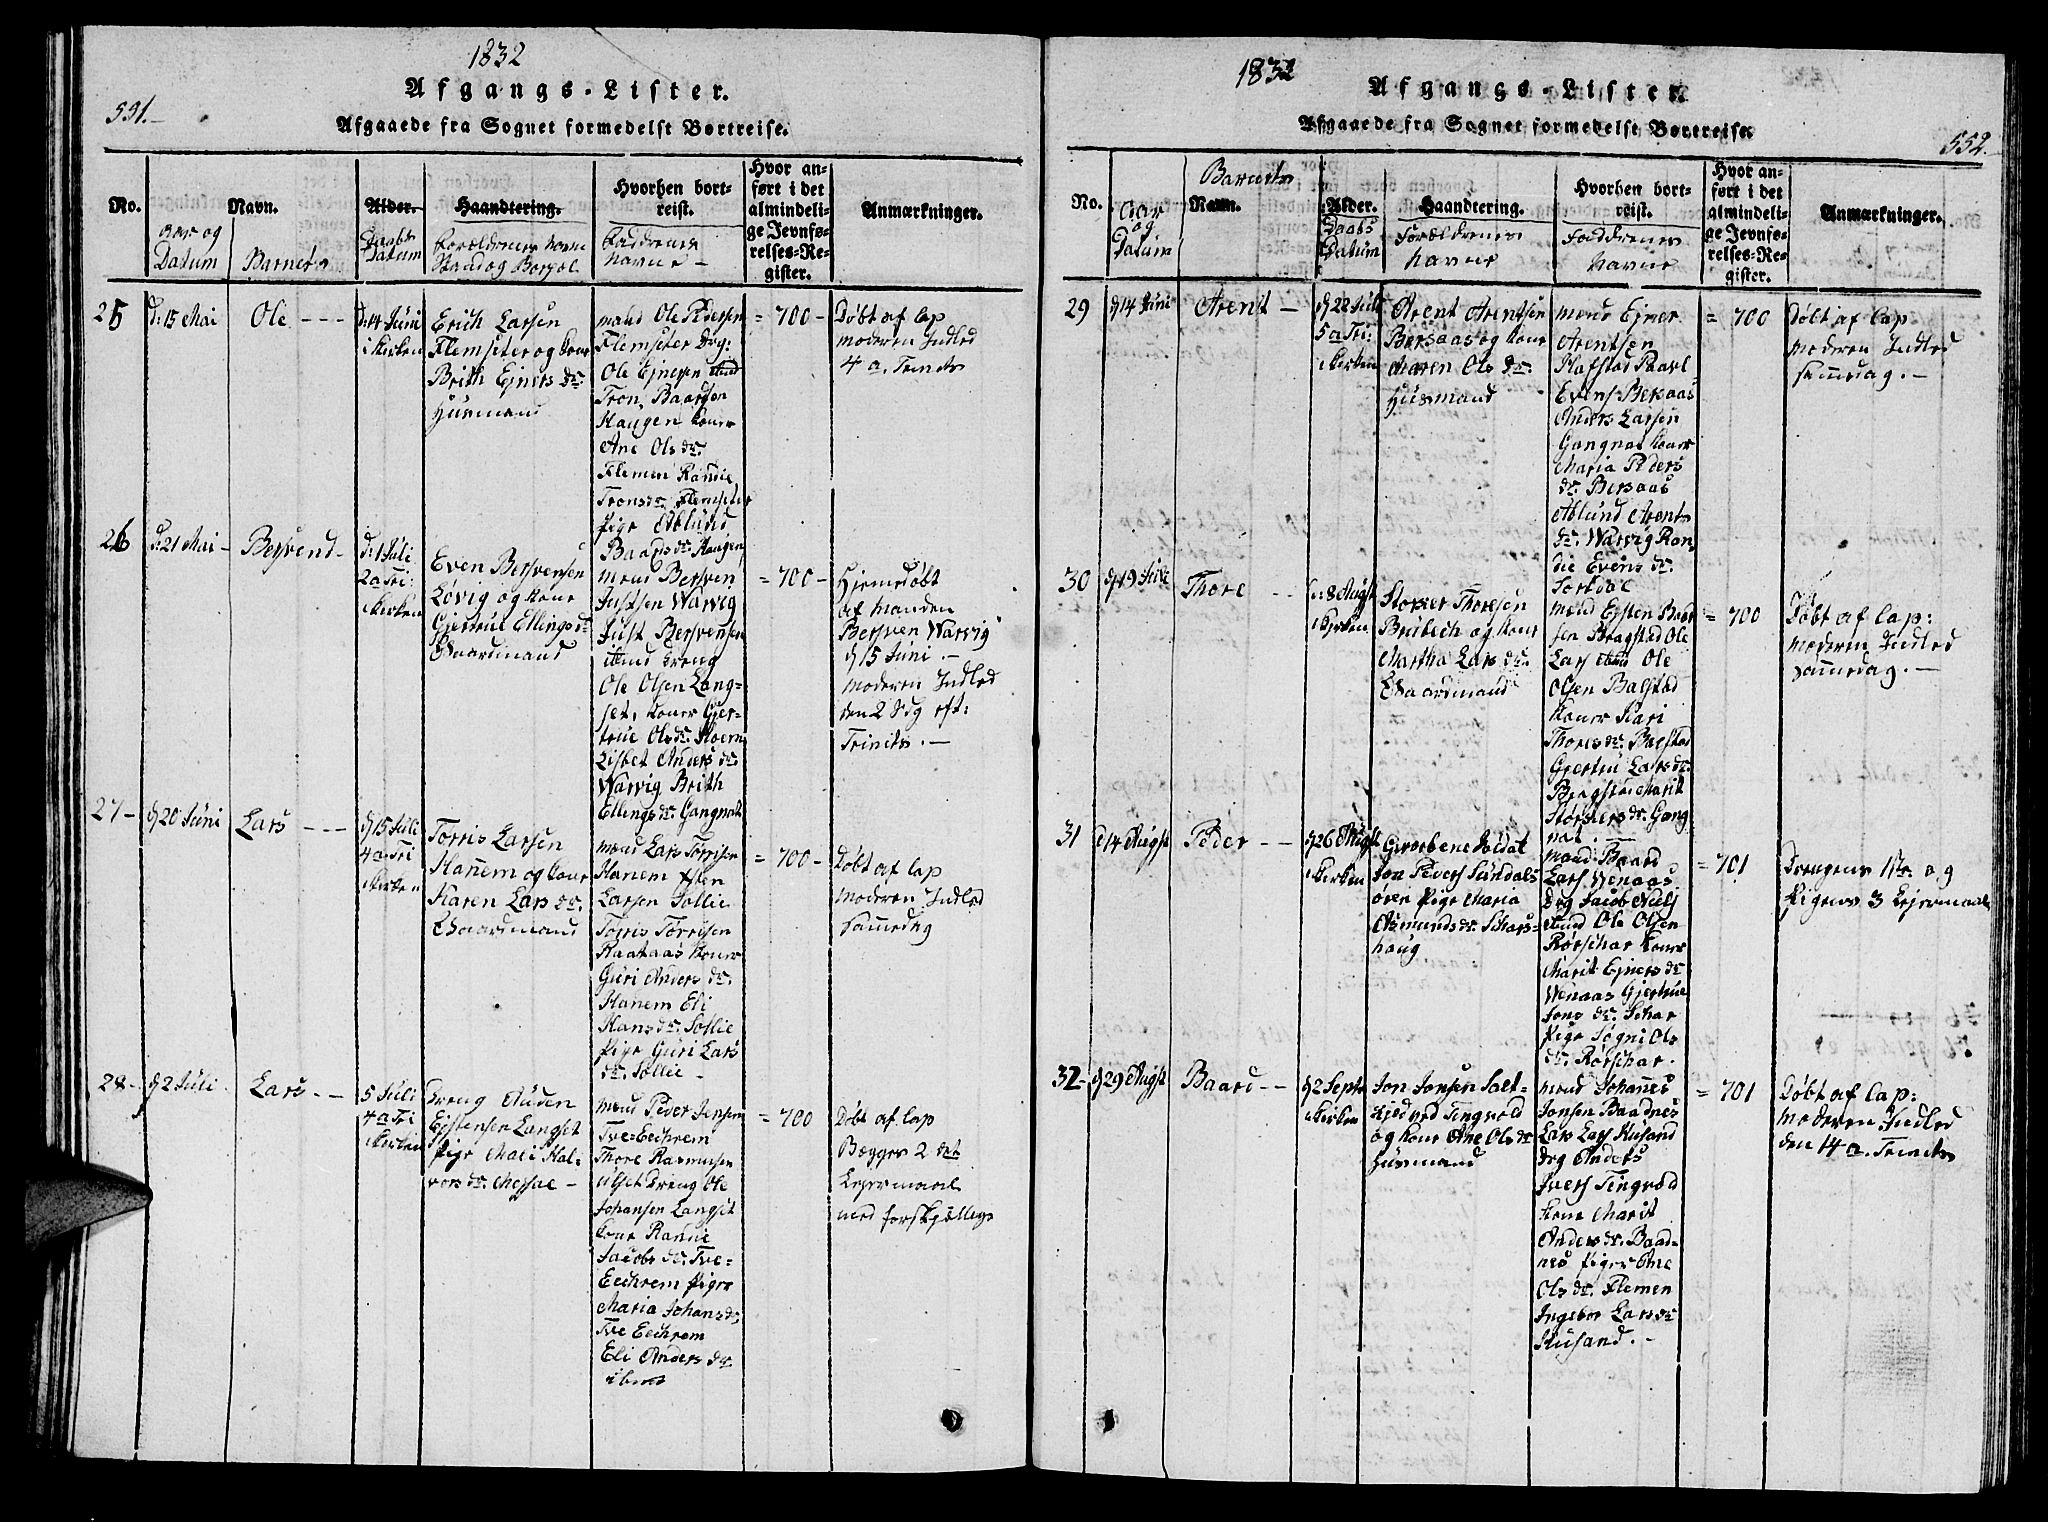 1832
Afgangs-Lister.
531.-
Afgaaede fra Sognet formedelst Bortreise.
No.
Navn.
Alder.
Haandtering.
Hvorhen bort-
reist.
Hvor an-
ført i det
almindeli-
ge Jevnfø-
relses-Re-
gister.
Anmærkninger.
aar og
Datum
Barnets
Daabs
Datum
Forældrenes Navne
Stand og Bopæl
Faddrenes
Navne -
25
d. 15 Mai
Ole - - -
d. 14 Juni
i Kirken
Erich Larsen
Flemseter og Kone
Brith Ejners dr.
Husmand
mand Ole Pedersen
Flemseter Drg:
Ole Ejnesen
Tron, Baardsen
Haugen koner
Ane Ols dr.
Flemen Randie
Trons dr. Flemseter
Pige Ablund
Baards dr. Haugen
= 700 -
Døbt af Cap
moderen Indled
4 a. Trinits
26
d. 21 Mai -
Bersvend -
d. 1 Juli
2 a Tri:
i Kirken
Even Bersvensen
Løvig og Kone
Gjertrue Ellings dr.
Gaardmand
mand Bersven
Justsen Warvig
Just Bersvensen
ibmd Dreng
Ole Olsen Lang-
set, koner Gjer-
true Ols dr. Hoem
Lisbet Anders dr.
Warvig Brith
Ellings dr. Gangnat
= 700 -
Hjemedøbt
af Manden
Bersven Warvig
d 15 Juni -
moderen Indled
den 2 Sdg eft:
Trinits. -
27 -
d 20 Juni
Lars - - -
d 15 Juli
4 a Tri
i Kirken
Torris Larsen
Hanem og Kone
Karen Lars dr.
Gaardmand
mand Lars Torrisen
Hanem Esten
Larsen Sollie
Torris Torrisen
Raataas koner
Guri Anders dr.
Hanem Eli
Hans dr. Sollie
Pige Guri Lars
dr. Sollie -
= 700 -
Døbt af Cap
moderen Indled
sammedag
28 -
d 2 Juli -
Lars - -
5 Juli
4 a Tri
i Kirken
Dreng Auden
Estensen Langset
Pige Mari Hal-
vors dr. Messal -
mand Peder Jensen
Tve-Eechrem
Thore Rasmusen
ulset Dreng Ole
Johansen Langset
kone Randie
Jacobs dr. Tve-
Eechrem Piger
Maria Johans dr.
Tve Eechrem
Eli Anders dr.
ibmd
= 700
Døbt af Cap
Begges 2 det
Lejermaal
med forskjellige
1832
Afgangs-Lister.
Afgaaede fra Sognet formedelst Bortreise.
552.
No.
Barnets
Navn.
Alder.
Haandtering.
Hvorhen bort-
reist.
Hvor an-
ført i det
almindeli-
ge Jevnfø-
relses-Re-
gister.
Anmærkninger.
Aar
og
Datum
Daabs
Datum
Forældrenes
Navne
Faddrenes
Navne
29
d 14 Juni
Arent -
d 22 Juli
5 a Tri:
i Kirken
Arent Arentsen
Bersaas og Kone
Maren Ols dr.
Husmand
mand Ejner
Arentsen
Hafstad Paavl
Evens: Bersaas
Anders Larsen
Gangnat koner
Maria Peders
dr. Bersaas
Ablund Arents
dr. Warvig Ran-
die Evens dr.
Torkdal
= 700
Døbt af Cap
moderen Indled
samedag. -
30
d 19 Juli
Thore - -
d. 8 Augst
i Kirken
Størker Thoresen
Brubech og Kone
Martha Lars dr.
Gaardmand
mand Esten Baar
sen Bragstad Ole
Lars ibmd Ole
Olsen Balstad
koner Kari
Thores dr. Balstad
Gjertru Lars dr.
Bragstad Marit
Størkers dr. Gang
nat. -
= 700
Døbt af Cap:
moderen Indled
samedag. -
31
d 14 Augst
Peder - -
d 26 Augst
i Kirken
Gevorbene Soldat
Jon Peders Sundals
øren Pige Maria
Asmunds dr. Schars-
haug
mand Baard
Lars Wenaas
Drg Jacob Niels
ibmd Ole Olsen
Rørschar koner
Marit Ejners dr.
Wenaas Gjertrue
Jons dr. Schar
Pige Søgni Ols
dr. Rørschar.
= 701
Drengens 1ste og
Pigens 3 Lejermaal
32 -
d 29 Augst
Baard - -
d 2 Septr
i Kirken
Jon Jonsen Salt-
kjedved Tingvold
og Kone Ane Ols dr.
Husmand
mand Johannes
Jonsen Baadnes
Lars Lars Husand
drg Anders
Ivers Tingvold
kone Marit
Anders dr. Baad-
nes Piger Ane
Ols dr. Flemen
Ingebor Lars dr.
Husand. -
= 701
Døbt af Cap:
moderen Indled
den 14 a. Trinits